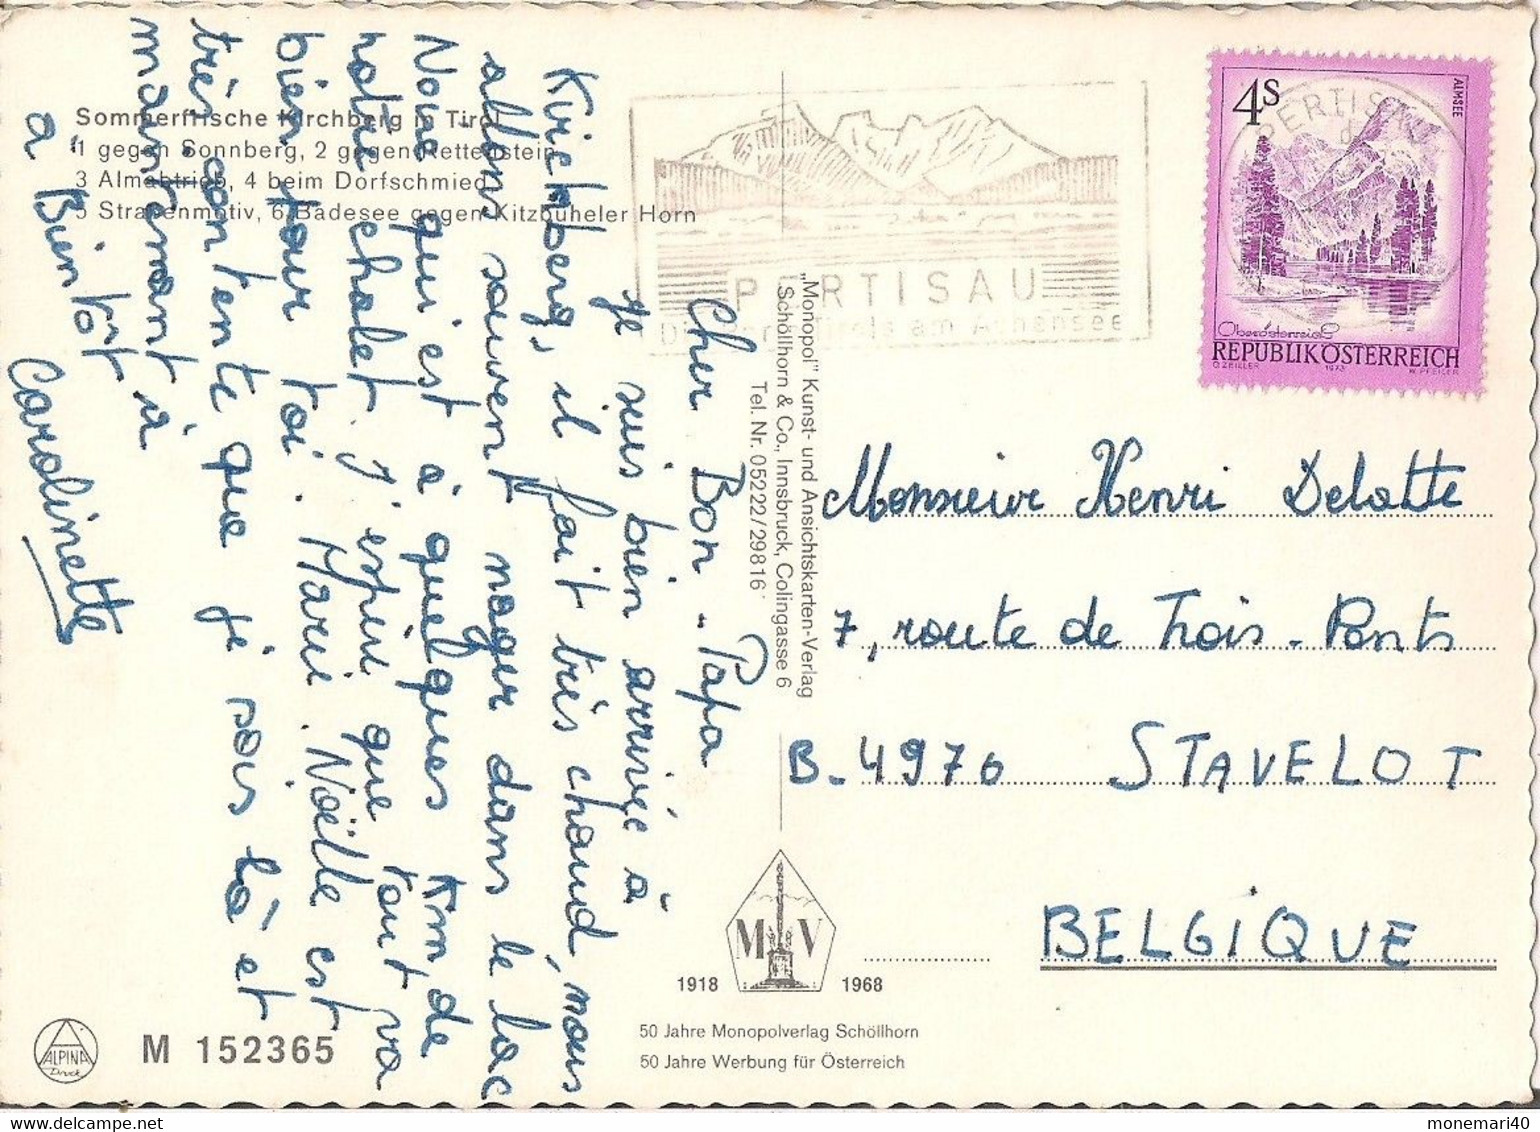 Sommerfrische Kirchberg in Tirol
1 gegen Sonnberg, 2 gegen Rettenstein
3 Almabtrieb, 4 beim Dorfschmied
5 Straßenmotiv, 6 Badesee gegen Kitzbüheler Horn
Cher Bon-Papa
je suis bien arrivée à
Kirchberg, il fait très chaud, nous
allons souvent nager dans le lac
Noire qui est à quelques Km de
notre chalet. J'espère que tout va
bien pour toi. Marie.Noëlle est
très contente que je sois là et
maintenant à
à Bientôt
Carolinette
PERTISAU
am Achensee
PERTISAU
4S
ALMSEE
Oberösterreich
REPUBLIK ÖSTERREICH
O.ZEILLER 1973 W.PFEILER
„Monopol" Kunst- und Ansichtskarten-Verlag
Schöllhorn & Co., Innsbruck, Colingasse 6
Tel. Nr. 05222/29816
Monsieur Henri Delatte
7, route de Trois-Ponts
B-4970 STAVELOT
BELGIQUE
M V
1918 1968
50 Jahre Monopolverlag Schöllhorn
50 Jahre Werbung für Österreich
ALPINA
Druck
M 152365
monemari40